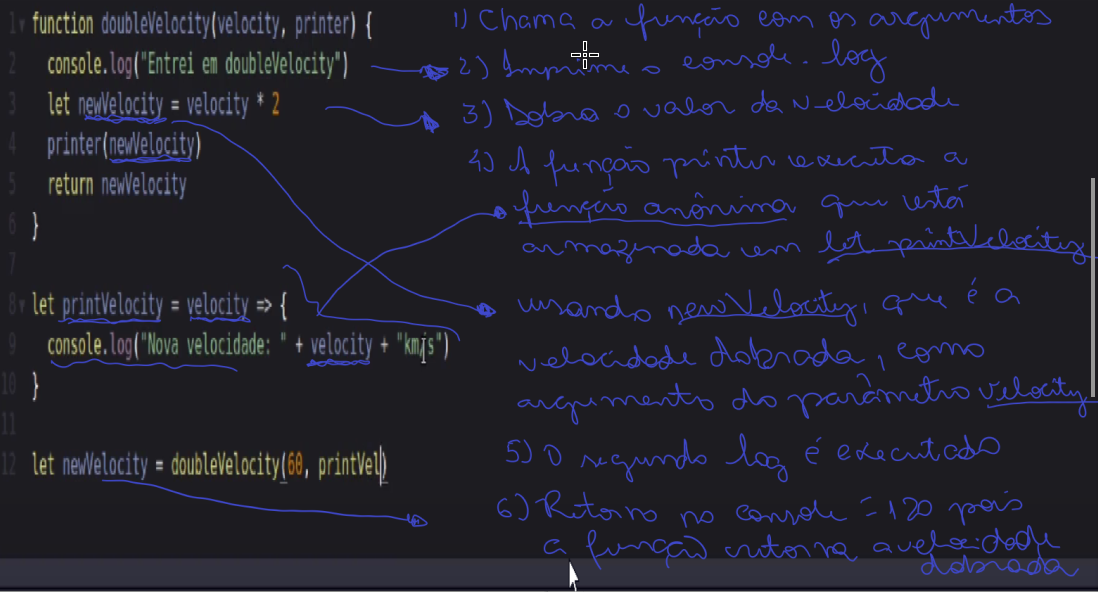 1 function doubleVelocity(velocity, printer) {
2 console.log("Entrei em doubleVelocity")
3 let newVelocity = velocity * 2
4 printer(newVelocity)
5 return newVelocity
6 }
7
8 let printVelocity = velocity => {
9 console.log("Nova velocidade: " + velocity + "km/s")
10 }
11
12 let newVelocity = doubleVelocity(60, printVel)
1) Chama a função com os argumentos
2) Imprime o console.log
3) Dobra o valor da velocidade
4) A função printer executa a
função anônima que está
armazenada em let printVelocity
usando newVelocity, que é a
velocidade dobrada, como
argumento do parâmetro velocity
5) O segundo log é executado
6) Retorno no console = 120 pois
a função retorna a velocidade
dobrada